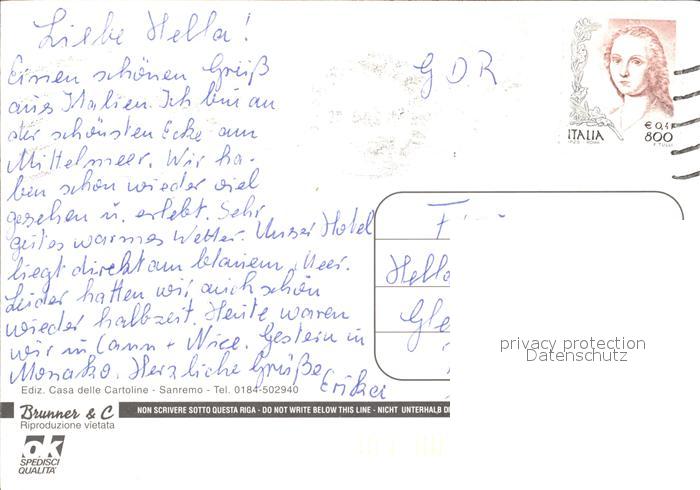 Liebe Hella!
Einen schönen Gruß
aus Italien. Ich bin an
der schönsten Ecke am
Mittelmeer. Wir ha-
ben schon wieder viel
gesehen u. erlebt. Sehr
gutes warmes Wetter. Unser Hotel
liegt direkt am blauem Meer.
Leider hatten wir auch schön
wieder halbzeit. Heute waren
wir in Cann + Nice. Gestern in
Monako. Herzliche Grüße
Erika
GDR
ITALIA
€ 0,41
800
Hella
Gle
privacy protection
Datenschutz
Ediz. Casa delle Cartoline - Sanremo - Tel. 0184-502940
Brunner & C
Riproduzione vietata
NON SCRIVERE SOTTO QUESTA RIGA - DO NOT WRITE BELOW THIS LINE - NICHT UNTERHALB DI
ok
SPEDISCI
QUALITA'